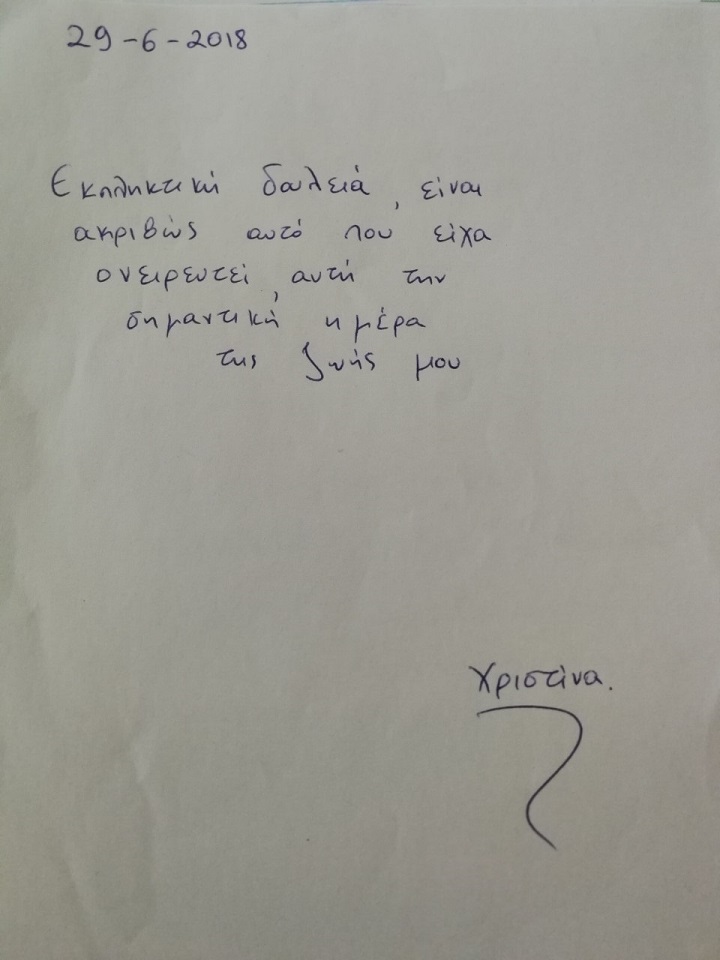 29-6-2018
Εκπληκτική δουλειά, είναι
ακριβώς αυτό που είχα
ονειρευτεί, αυτή την
σημαντική ημέρα
της ζωής μου
Χριστίνα.